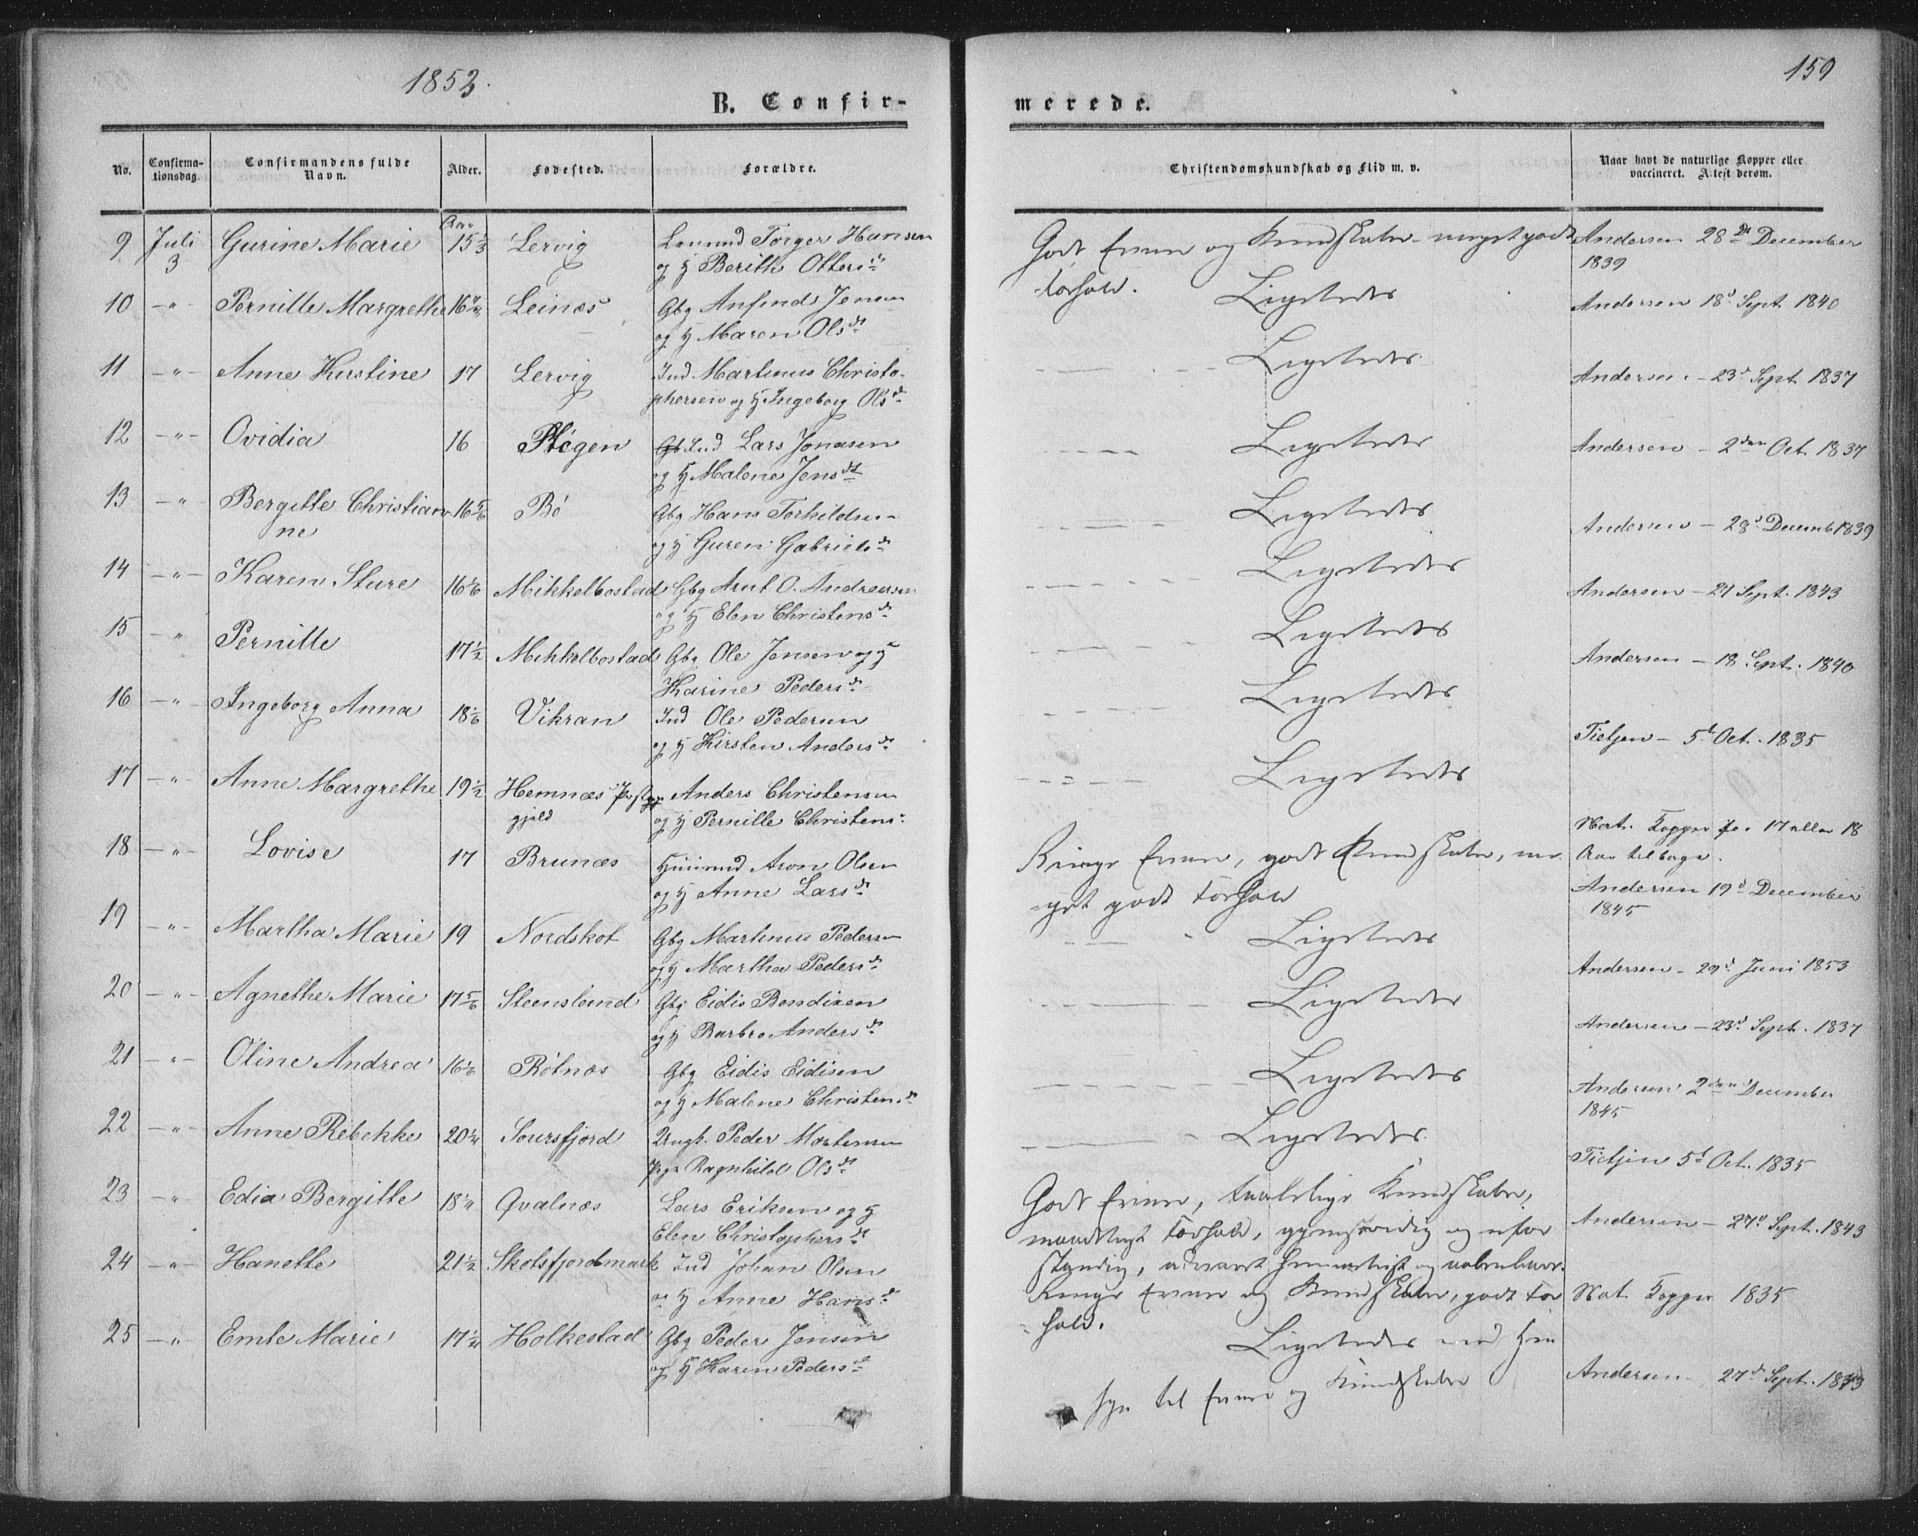 1853.
159
B. Confir-
merede.
No.
Confirma-
tionsdag.
Confirmandens fulde
Navn.
Alder.
Fødested.
Forældre.
Christendomskundskab og Flid m. v.
Naar havt de naturlige Kopper eller
vaccineret. Attest derom.
9 Juli 3 Gurine Marie Aar 15 1/3 Lervig Torger Hansen
og H Berith Otters d.
Godt Evner og Kundskaber meget godt
Forhold.
Andersen 28 de December
1839
10 -"- Pernille Margrethe 16 Leinæs Gbg Anfind Jensen
og H Maren Ols dt
Ligeledes
Andersen 18 d Sept. 1840
11 -"- Anne Kirstine 17 Lervig Ind Martinus Christo-
phersen og H Ingeborg Ols d.
Ligeledes
Andersen - 23 d Sept. 1837
12 -"- Ovidia 16 Pløgen Ind Lars Jonasen
og H Malene Jens dt
Ligeledes
Andersen - 2 den Oct. 1837
13 -"- Bergitte Christian- 16 5/6 Bø Gbg Hans Torkildsen
ne og H Guren Gabriels d.
Ligeledes
Andersen - 28 d Decemb 1839
14 -"- Karen Sture 16 1/6 Mikkelbostad Gbg Arnt O. Andreasen
og H Elen Christens d.
Ligeledes
Andersen - 27 Sept. 1843
15 " Pernille 17 1/2 Mikkelbostad Gbg Ole Jensen og H
Karine Peders d.
Ligeledes
Andersen - 18 Sept. 1840
16 -"- Ingeborg Anna 18 1/6 Vikran Ind Ole Pedersen
og H Kirsten Anders d.
Ligeledes
Tietjen - 5 t Oct. 1835
17 -"- Anne Margrethe 19 1/2 Hemnæs Præste Anders Christensen
gjeld og H Pernille Christens d.
Ligeledes
Nat. Kopper for 17 eller 18
Aar tilbage.
18 -"- Lovise 17 Brunæs Huusmd Aron Olsen
og H Anne Lars d.
Ringe Evner, godt Kundskaber, me-
get godt Forhold
Andersen 19 d December
1845
19 -"- Martha Marie 19 Nordskot Gbg Martinus Pedersen
og H Martha Peders d.
Ligeledes
Andersen - 29 d Juni 1853
20 -"- Agnethe Marie 17 5/6 Steenslund Gbg Eidis Bendixen
og H Barbro Anders d.
Ligeledes
Andersen - 23 d Sept. 1837
21 -"- Oline Andrea 16 1/6 Røtnæs Gbg Eidis Eidisen
og H Malene Christens d.
Ligeledes
Andersen 2 den December
1845
22 -"- Anne Rebekke 20 1/4 Soursfjord Ungk. Peder Mortensen
Pige Ragnhild Ols dt
Ligeledes
Tietjen 5 t Oct. 1835
23 -"- Edia Bergitte 18 Qvalnæs Lars Eriksen og H
Elen Christophers dt
Godt Evner, taalelige Kundskaber,
maadeligt Forhold, og ufor-
standig,
Andersen - 27 d Sept. 1843
24 -"- Hanette 21 1/2 Skotsfjordmark Ind Johan Olsen
og H Anne Hans d.
Ringe Evner og Kundskaber, godt For-
hold.
Nat. Kopper 1835
25 -"- Emte Marie 17 1/4 Holkestad Gbg Peder Jensen
og H Karen Peders d.
Ligeledes med Hen
syn til Evner og Kundskaber
Andersen 27 d Sept. 1843